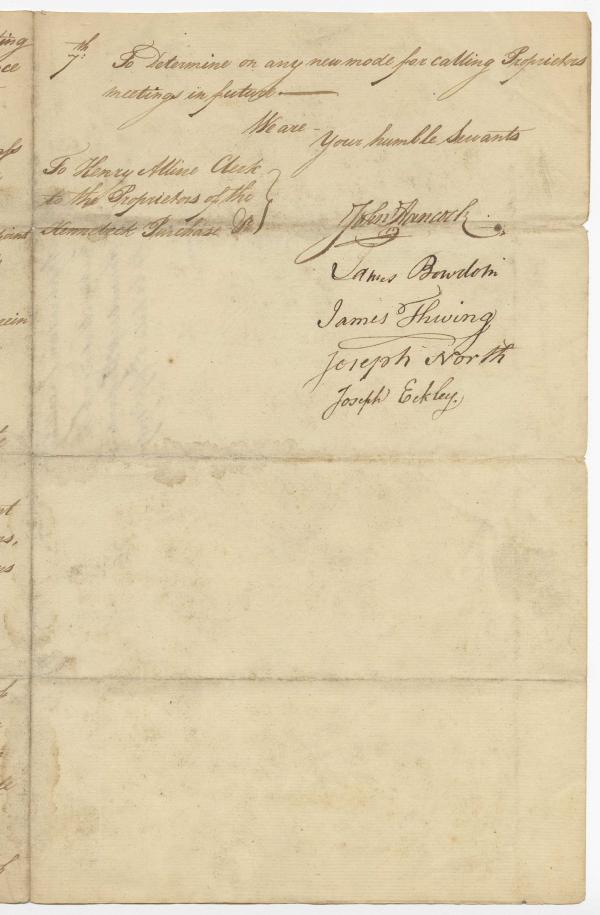 7th To Determine on any new mode for calling Proprietors
meetings in future —
We are —
Your humble Servants
To Henry Alline Clerk
to the Proprietors of the
Kennebeck Purchase &c
John Hancock
James Bowdoin
James Thwing
Joseph North
Joseph Eckley.